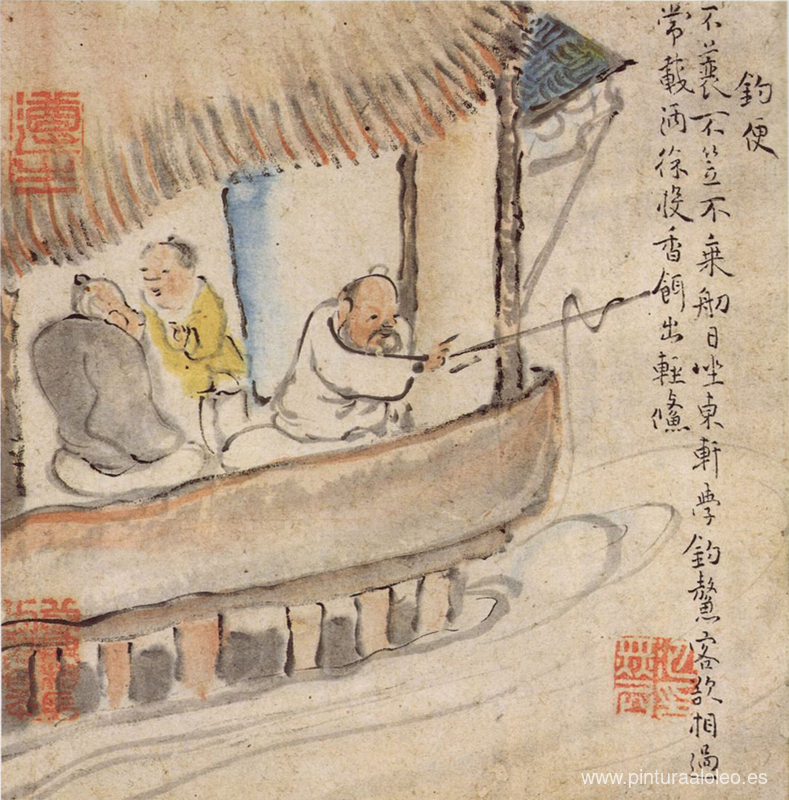 釣便
不蓑不笠不乗舠日坐東軒學釣鰲客欲相過
常載酒徐投香餌出輕鯈
www.pinturaaloleo.es